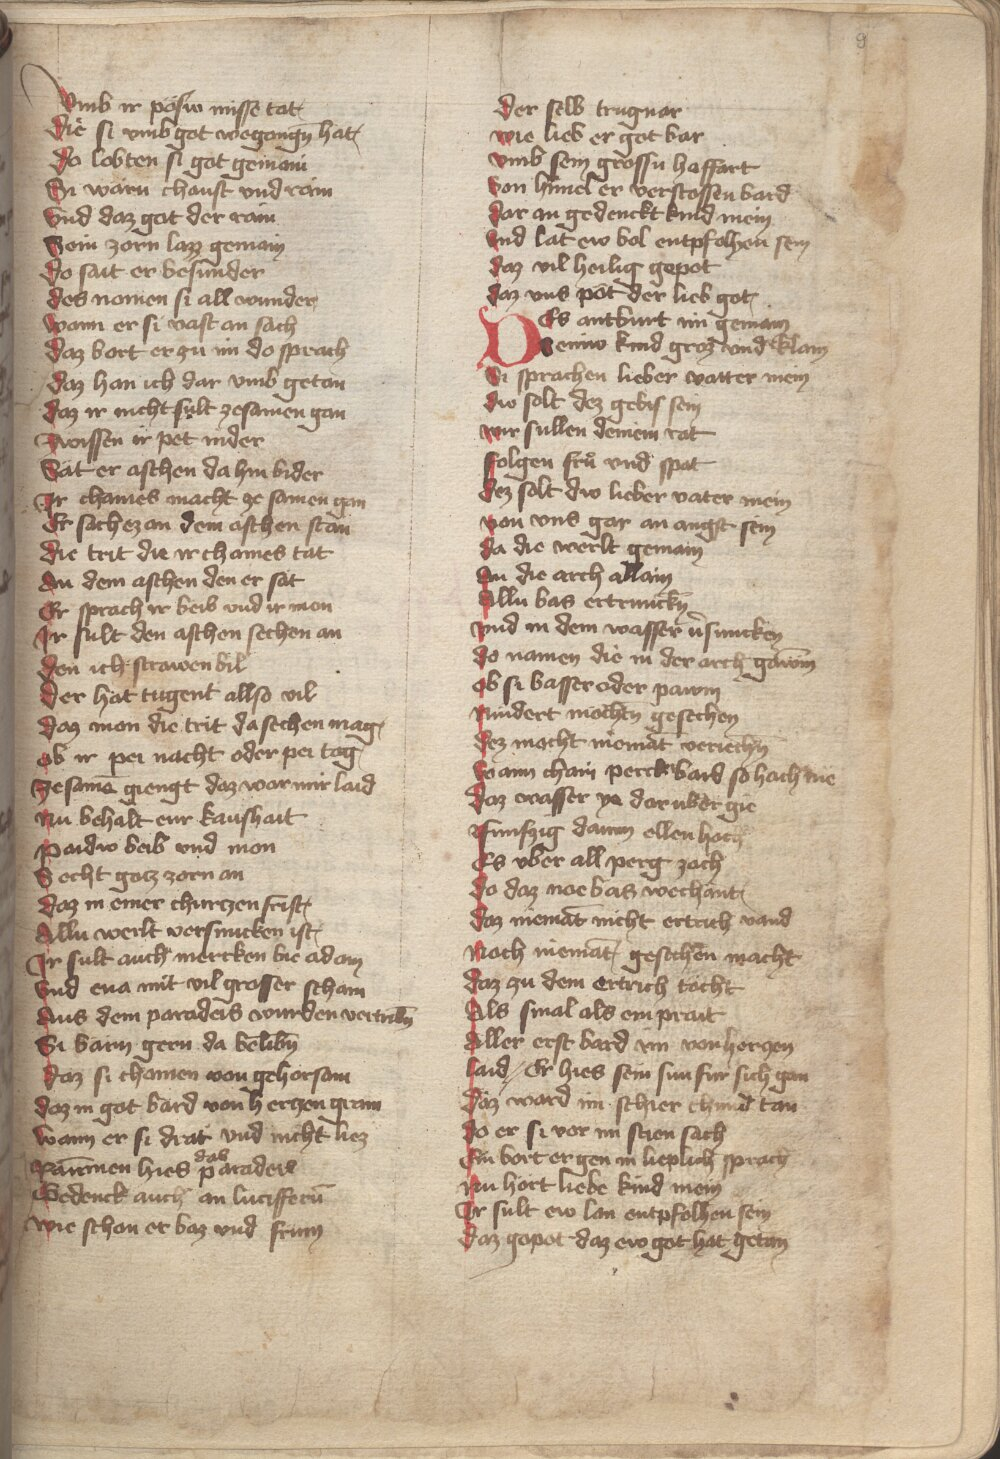 9
Vmb ir pösw misse tat
die si vmb got wegangn hat
do lobten si got gemain
Si warn chaust vnd rain
vnd daz got der rain
Sein zorn lazz gemain
do sait er besunder
des nomen si all wunder
wann er si vast an sach
daz bort er zu im do sprach
daz han ich dar vmb getan
daz ir nicht sült zesamen gan
wissen ir pet nider
Sät er aschen da hin bider
Ir chaines macht ze samen gan
Er sach ez an dem aschen stan
die trit die ir chaines tät
An dem aschen den er sät
Er sprach ir beib vnd ir man
Ir sült den aschen sechen an
den ich strawen bil
der hat tugent allso vil
daz mon die trit da sechen mag
ob ir pei nacht oder pei tag
zesamē giengt daz war mir laid
Nu behalt eur kaushait
paidw beib vnd mon
Secht gotz zorn an
daz in einer churczen frist
Allu werlt versincken ist
Ir sült auch mercken bie adam
vnd eua mit vil grosser scham
Aus dem paradeis wurden vertribn
Si barn gern da belibn
daz si chamen von gehorsam
daz in got bard von herczen gram
wann er si drat vnd nicht liez
Raumen hies das paradeis
Gedenck auch an lucifferū
wie schon er baz vnd frum
der selb trugnar
wie lieb er got bar
vmb sein grossu hoffart
von himel er verstossen bard
dar an gedenckt kind mein
vnd lat ew bol entpfolhen sein
daz vil heilig gepot
daz vns pot der lieb got
Es antburt im gemain
Seiniw kind groz vnd klain
Si sprachen lieber vatter mein
dw solt dez gebis sein
wir sullen deinem rat
folgen frů vnd spat
dez solt dw lieber vater mein
von vns gar an angst sein
da die werlt gemain
An die arch allain
Allu bas ertrunckn
vnd in dem wasser v̄suncken
do namen die in der arch gawm
ob si basser oder pawm
nindert mochtn gesechen
dez mocht niemāt veriechn
wann chain perck bard so hoch nie
daz wasser ye dar uber gie
funfzig dawm ellen hoch
Es vber all perg zoch
do daz noe bas wechant
daz niemāt nicht ertrich vand
Noch niemāt gesechen macht
daz zu dem ertrich tocht
Als smal als ein prait
Aller erst bard im von herczen
laid / Er hies sein sun fur sich gan
daz ward im schier chund tan
do er si vor im stien sach
Ein bort er gen in lieplich sprach
Nu hört liebe kind mein
Ir sült ew lan entpfolhen sein
daz gopot daz ew got hat getan